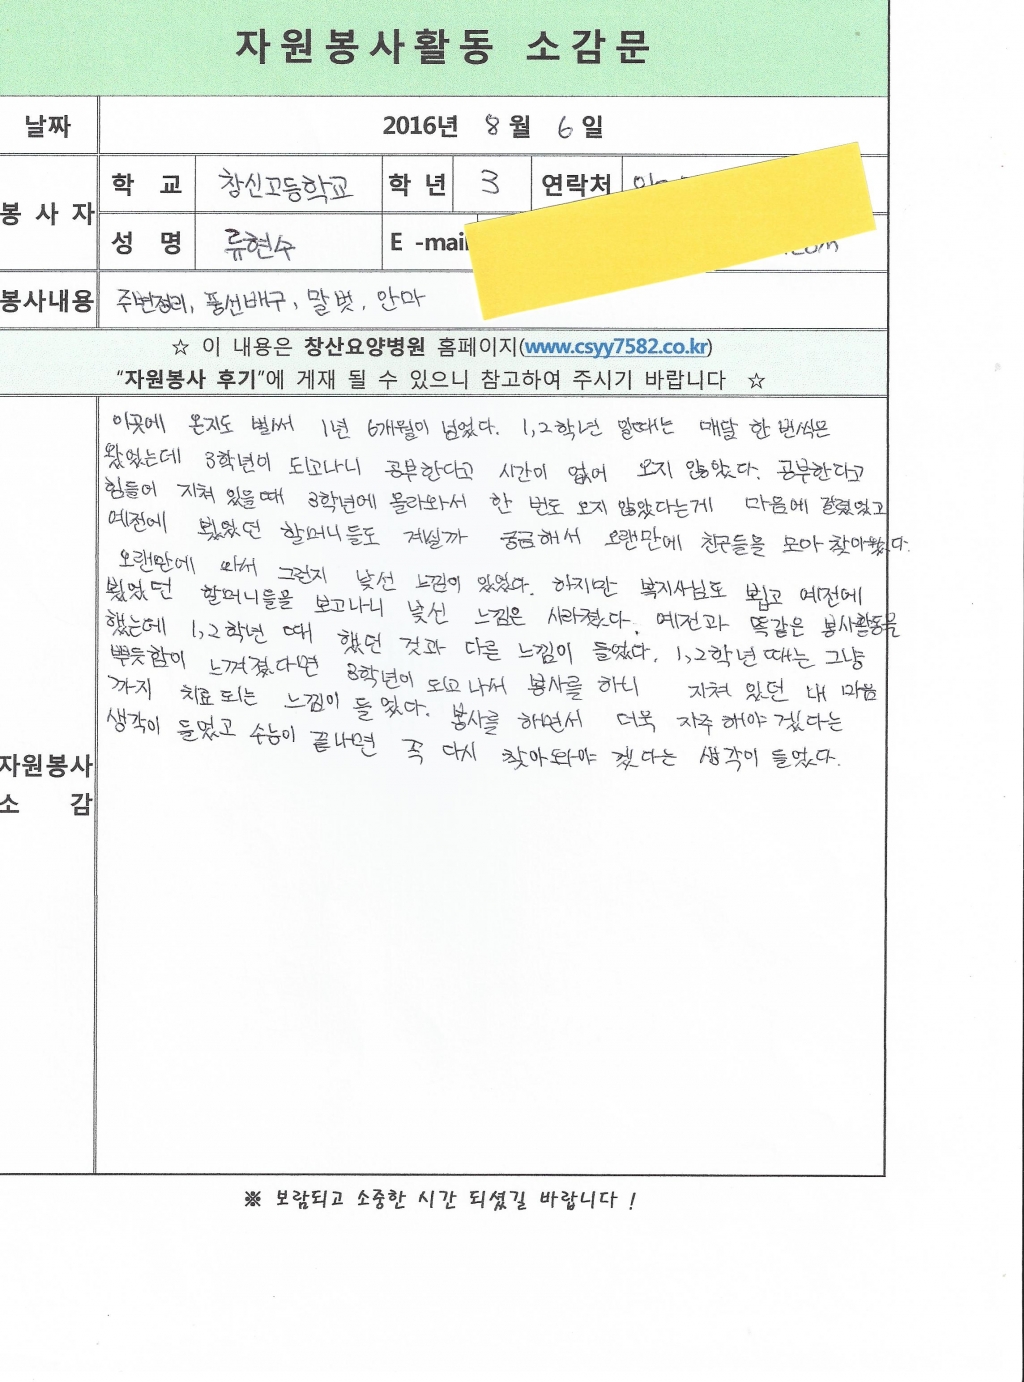 자원봉사활동 소감문
날짜 2016년 8월 6일
봉사자
학 교 창신고등학교 학 년 3 연락처
성 명 류현수 E -mail
봉사내용 주변정리, 풍선배구, 말벗, 안마
☆ 이 내용은 창산요양병원 홈페이지(www.csyy7582.co.kr)
“자원봉사 후기”에 게재 될 수 있으니 참고하여 주시기 바랍니다 ☆
자원봉사
소 감
이곳에 온지도 벌써 1년 6개월이 넘었다. 1,2학년 말때는 매달 한 번씩은
왔었는데 3학년이 되고나니 공부한다고 시간이 없어 오지 않았다. 공부한다고
힘들어 지쳐 있을때 3학년에 올라와서 한 번도 오지 않았다는게 마음에 걸렸었고
예전에 뵜었던 할머니들도 계실까 궁금해서 오랜만에 친구들을 모아 찾아왔다.
오랜만에 와서 그런지 낯선 느낌이 있었다. 하지만 복지사님도 뵙고 예전에
뵜었던 할머니들을 보고나니 낯선 느낌은 사라졌다. 예전과 똑같은 봉사활동을
했는데 1,2학년 때 했던 것과 다른 느낌이 들었다. 1,2학년때는 그냥
뿌듯함이 느껴졌다면 3학년이 되고 나서 봉사를 하니 지쳐 있던 내 마음
까지 치료되는 느낌이 들었다. 봉사를 하면서 더욱 자주 해야 겠다는
생각이 들었고 수능이 끝나면 꼭 다시 찾아와야 겠다는 생각이 들었다.
※ 보람되고 소중한 시간 되셨길 바랍니다 !